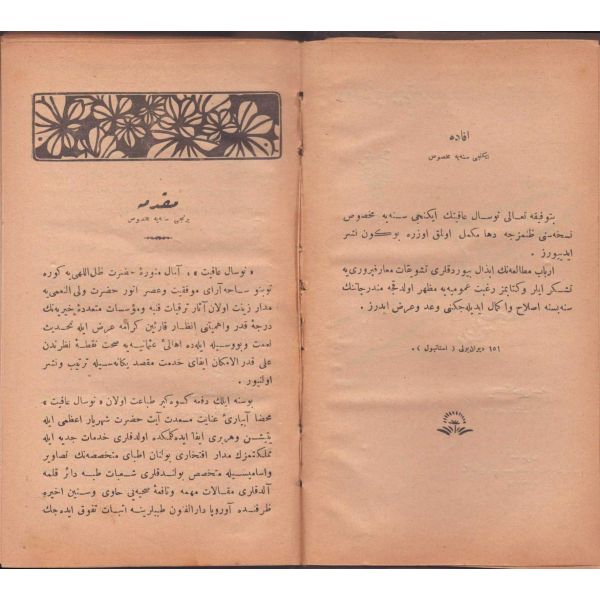 افاده
ایکنجی سنه‌یه مخصوص
بتوفیقه تعالی نوسال عافیتك ایکنجی سنه‌یه مخصوص
نسخه‌سنی ظنمزجه دها مکمل اولمق اوزره بوکون نشر
ایدییورز.
ارباب مطالعه‌نك ابذال بیوردقلری تشویقات معارفپروری‌یه
تشکر ایلر وکتابمز رغبت عمومیه‌یه مظهر اولدقجه مندرجاتنك
سنه‌بسنه اصلاح واکمال ایدیله‌جکنی وعد وعرض ایدرز.
۱۵۱ دیوان‌یولی ( استانبول ) .
مقدمه
برنجی سنه‌یه مخصوص
« نوسال عافیت » ، آمال منوره حضرت ظل‌اللهی‌یه کوره
توبنو ساحه‌آرای موفقیت وعصر انور حضرت ولی‌النعمی‌یه
مدار زینت اولان آثار ترقیات فنیه ومؤسسات متعدده خیریه‌نك
درجه قدر واهمیتنی انظار قارئین کرامه عرض ایله تحدیث
نعمت وبووسیله ایله‌ده اهالی عثمانیه‌یه صحت نقطه نظرندن
علی قدر الامکان ایفای خدمت مقصد یکانه‌سیله ترتیب ونشر
اولنیور .
بوسنه ایلك دفعه کسوه‌کیر طباعت اولان « نوسال عافیت »
محضا آبیاری عنایت مسعدت آیت حضرت شهریار اعظمی ایله
یتیشن وهربری ایفا ایده‌کلدکده اولدقلری خدمات جدیه ایله
مملکتمزك مدار افتخاری بولنان اطبای متخصصه‌نك تصاویر
واسامیسیله متخصص بولندقلری شعبات طبیه دائر قلمه
آلدقلری مقالات مهمه ونافعه صحیه‌یی حاوی وسنین اخیره
ظرفنده آوروپا دارالفنون طبیلرینه اثبات تفوق ایده‌جك